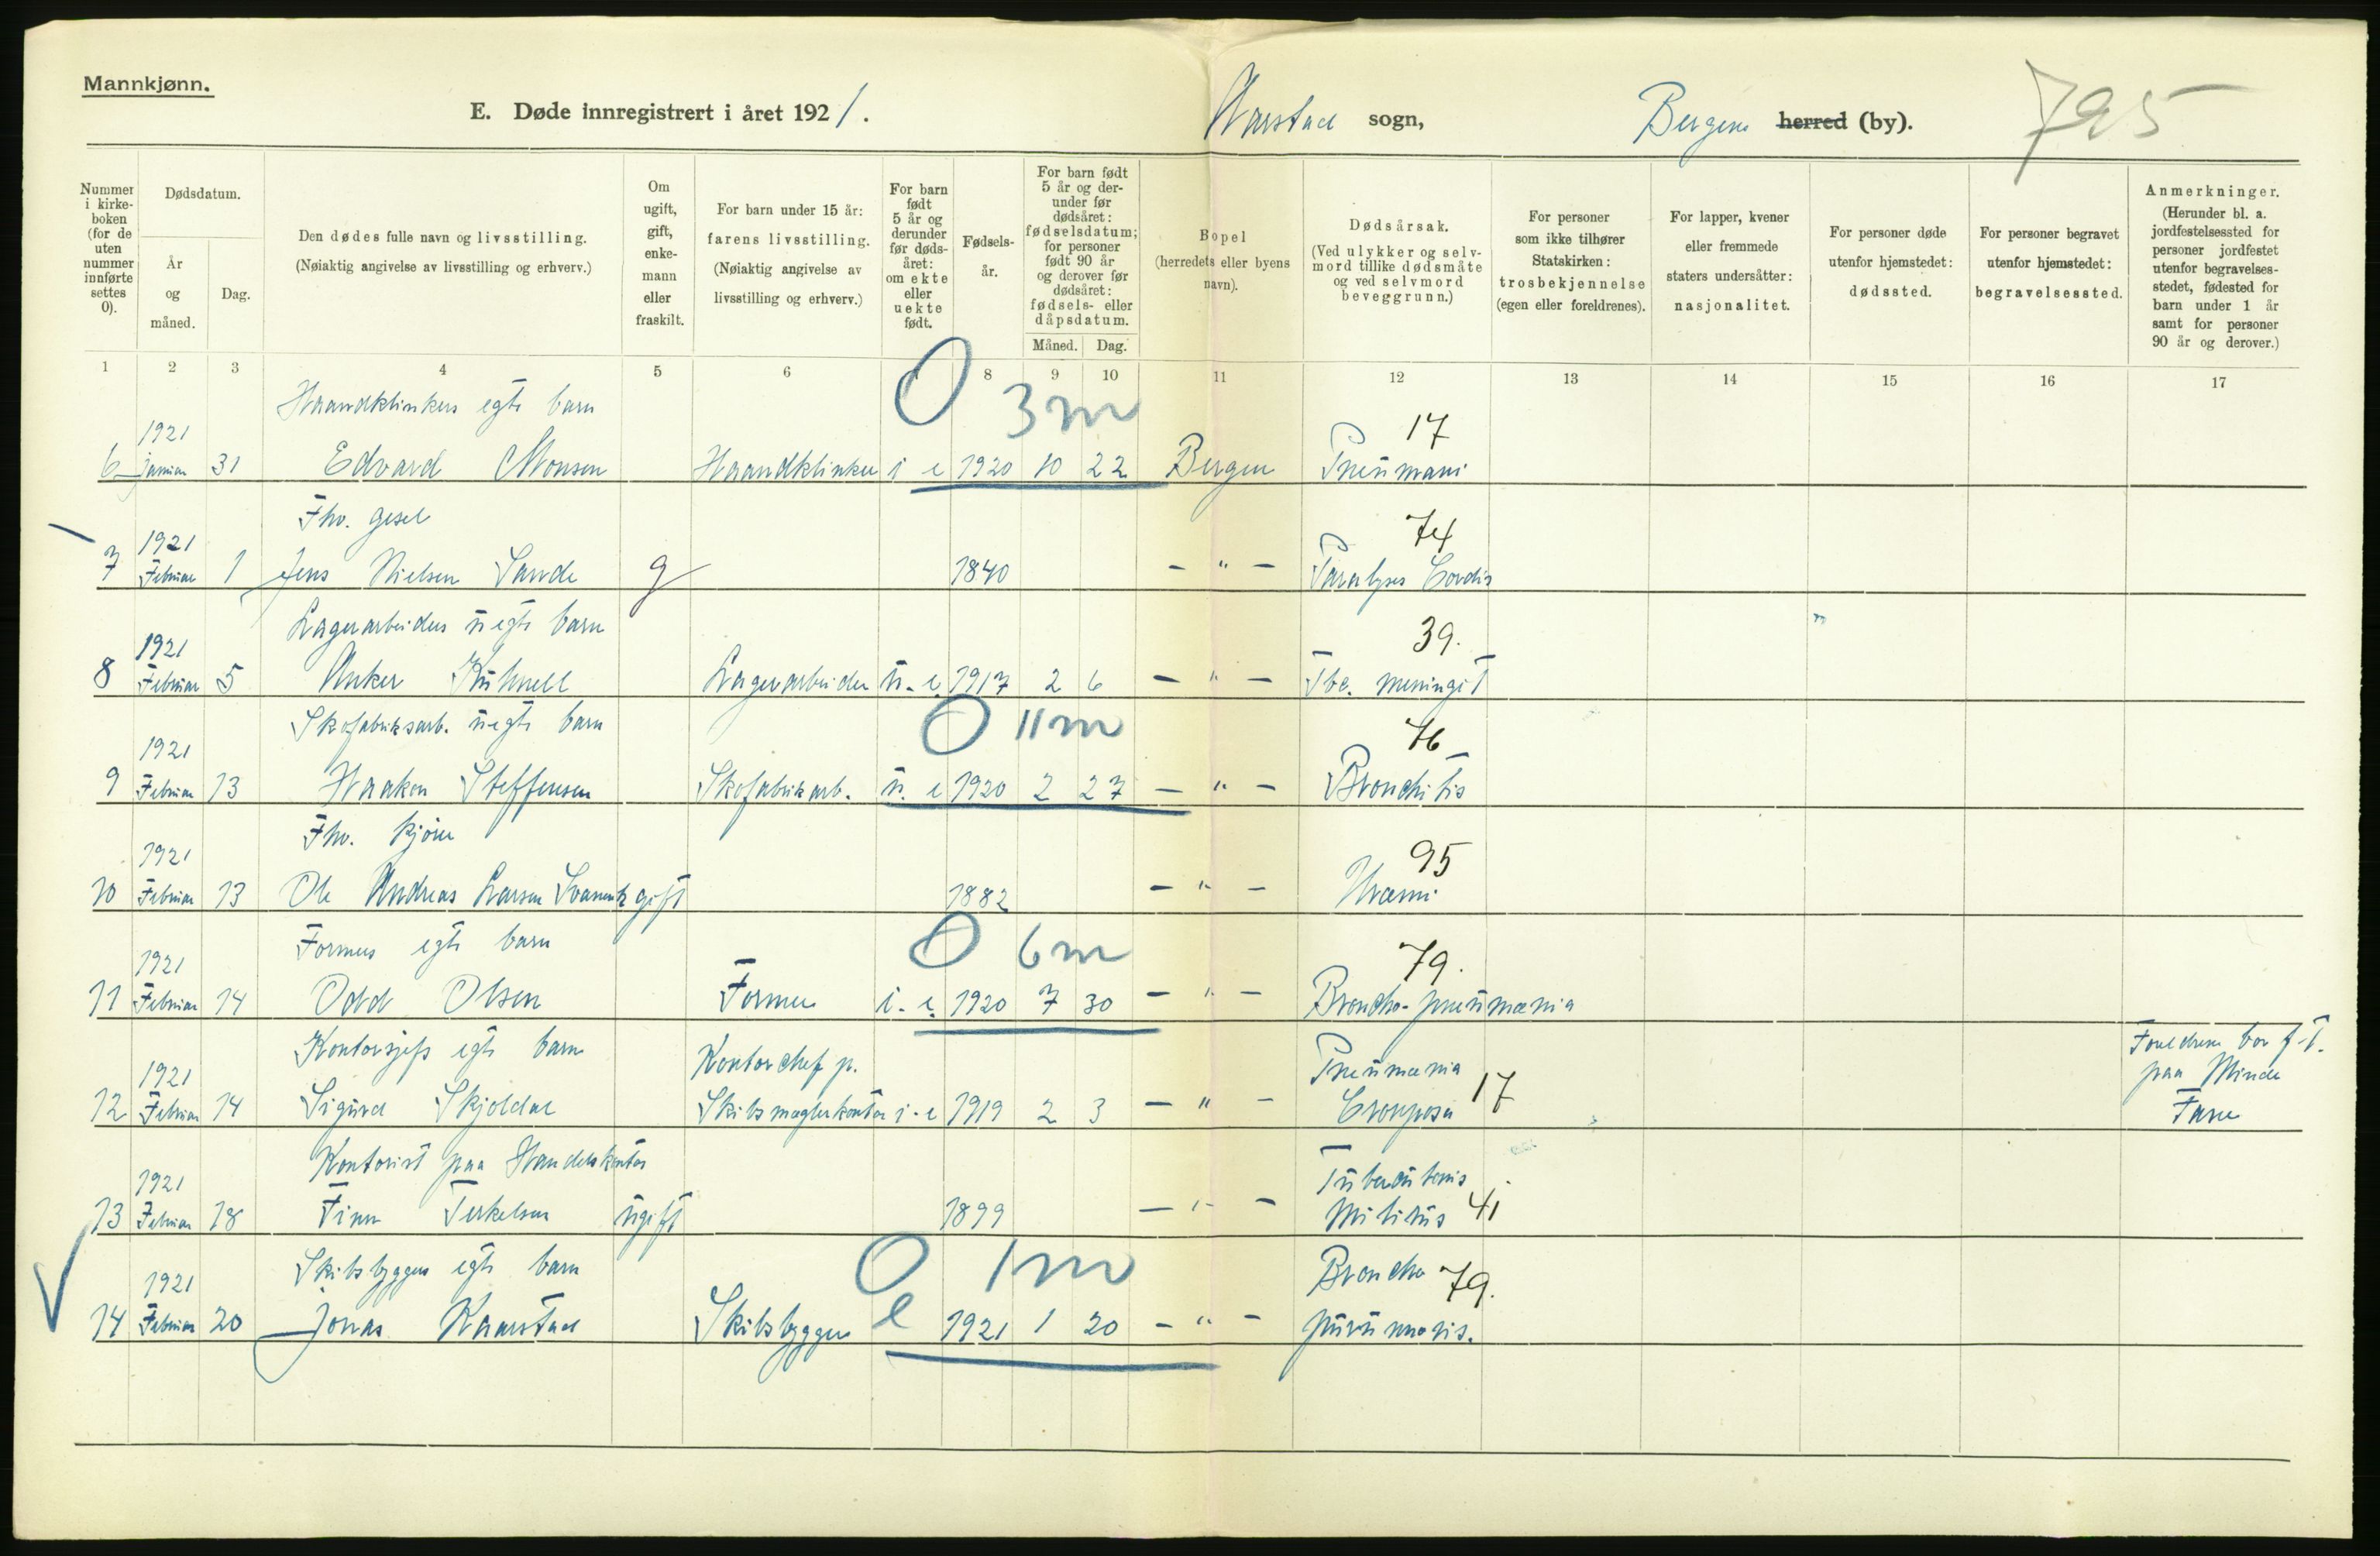 Mannkjønn.
E. Døde innregistrert i året 1921.
Aarstad sogn, Bergens herred (by). 795
Nummer i kirkeboken (for de uten nummer innførte settes 0).
Dødsdatum.
År og måned.
Dag.
Den dødes fulle navn og livsstilling.
(Nøiaktig angivelse av livsstilling og erhverv.)
Om ugift, gift, enkemann eller fraskilt.
For barn under 15 år: farens livsstilling.
(Nøiaktig angivelse av livsstilling og erhverv.)
For barn født 5 år og derunder før dødsåret: om ekte eller uekte født.
Fødselsår.
For barn født 5 år og derunder før dødsåret: fødselsdatum; for personer født 90 år og derover før dødsåret: fødsels- eller dåpsdatum.
Måned. Dag.
Bopel
(herredets eller byens navn).
Dødsårsak.
(Ved ulykker og selvmord tillike dødsmåte og ved selvmord beveggrunn.)
For personer som ikke tilhører Statskirken: trosbekjennelse (egen eller foreldrenes).
For lapper, kvener eller fremmede staters undersåtter: nasjonalitet.
For personer døde utenfor hjemstedet: dødssted.
For personer begravet utenfor hjemstedet: begravelsessted.
Anmerkninger.
(Herunder bl. a. jordfestelsessted for personer jordfestet utenfor begravelsesstedet, fødested for barn under 1 år samt for personer 90 år og derover.)
1 2 3 4 5 6 8 9 10 11 12 13 14 15 16 17
Haandklinkers egte barn 0 3 m
1921 17
6 januar 31 Edvard Monsen Haandklinker i e 1920 10 22 Bergen Pneumani
Fhv. gesel
1921 74
7 Februar 1 Jens Nielsen Sande g 1840 - " - Paralyses Cordis
Lagerarbeiders uegte barn
1921 39.
8 Februar 5 Anker Kühnell Lagerarbeider u. e. 1917 2 6 - " - Tbc. meningit
Skofabriksarb. uegte barn 0 11 m
1921 76
9 Februar 13 Haakon Steffensen Skofabrikarb. u. e 1920 2 27 - " - Bronchitis
Fhv. kjører
1921 95
10 Februar 13 Ole Andreas Larsen gift 1882 - " - Uræmi
Formers egte barn 0 6 m
1921 79.
11 Februar 14 Odd Olsen Former i. e. 1920 7 30 - " - Broncho-pneumænia
Kontorsjefs egte barn Kontorchef p. Pneumænia Foreldrene bor f.T.
1921 paa Minde
12 Februar 14 Sigurd Skjoldal Skibsmæglerkontor i. e 1919 2 3 - " - Crouposa 17 Fane
Kontorist paa Handelskontor
1921 Tuberculosis
13 Februar 18 Finn Terkelsen ugift 1899 - " - Miliaris 41
Skibsbyggers egte barn 0 1 m Broncho 79.
1921
14 Februar 20 Jonas Kaarstad Skibsbygger e 1921 1 20 - " -